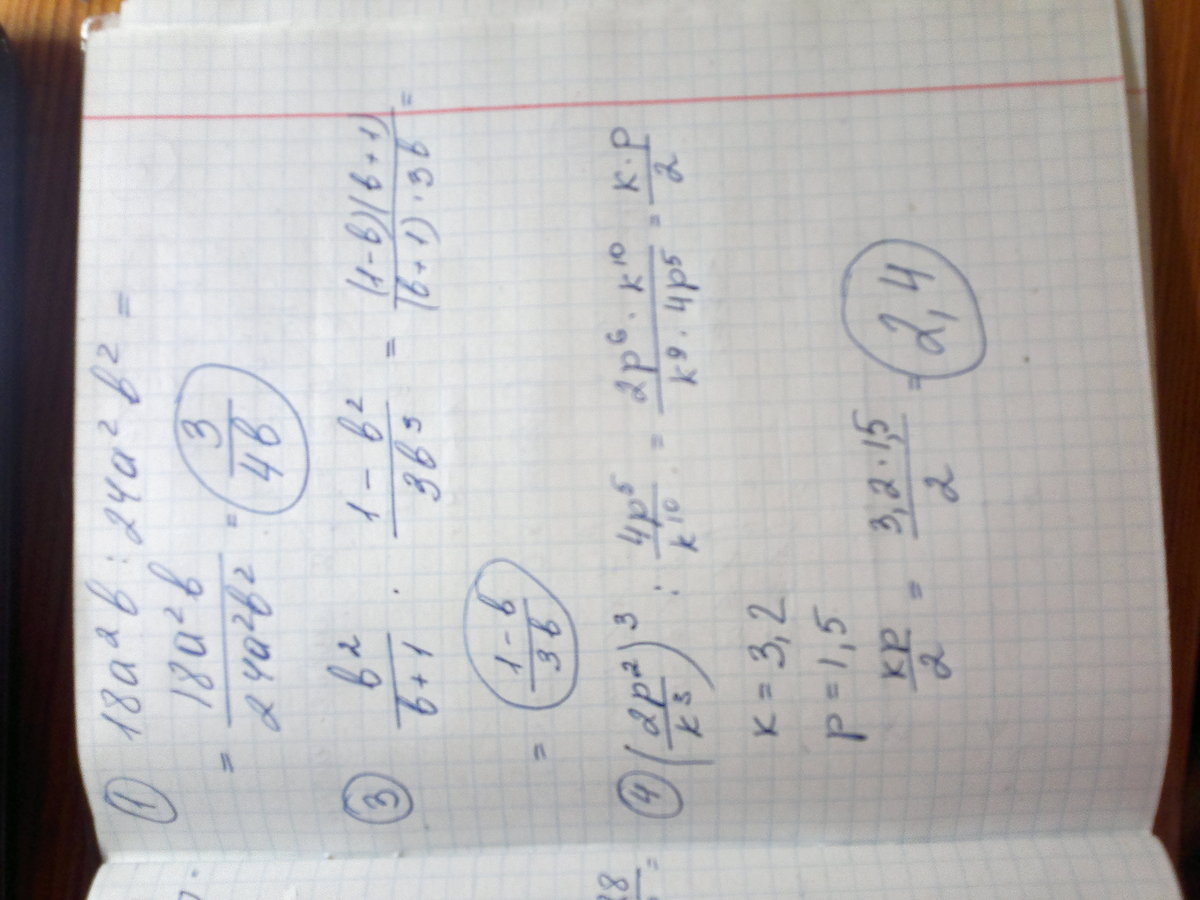 ① 18a²b : 24a²b² =
= 18a²b / 24a²b² = 3 / 4b
③ b² / b+1 · 1 - b² / 3b³ = (1-b)(b+1) / (b+1) · 3b =
= 1-b / 3b
④ (2p² / k³)³ : 4p⁵ / k¹⁰ = 2p⁶ · k¹⁰ / k⁹ · 4p⁵ = k · p / 2
k = 3,2
p = 1,5
kp / 2 = 3,2 · 1,5 / 2 = 2,4
28
=